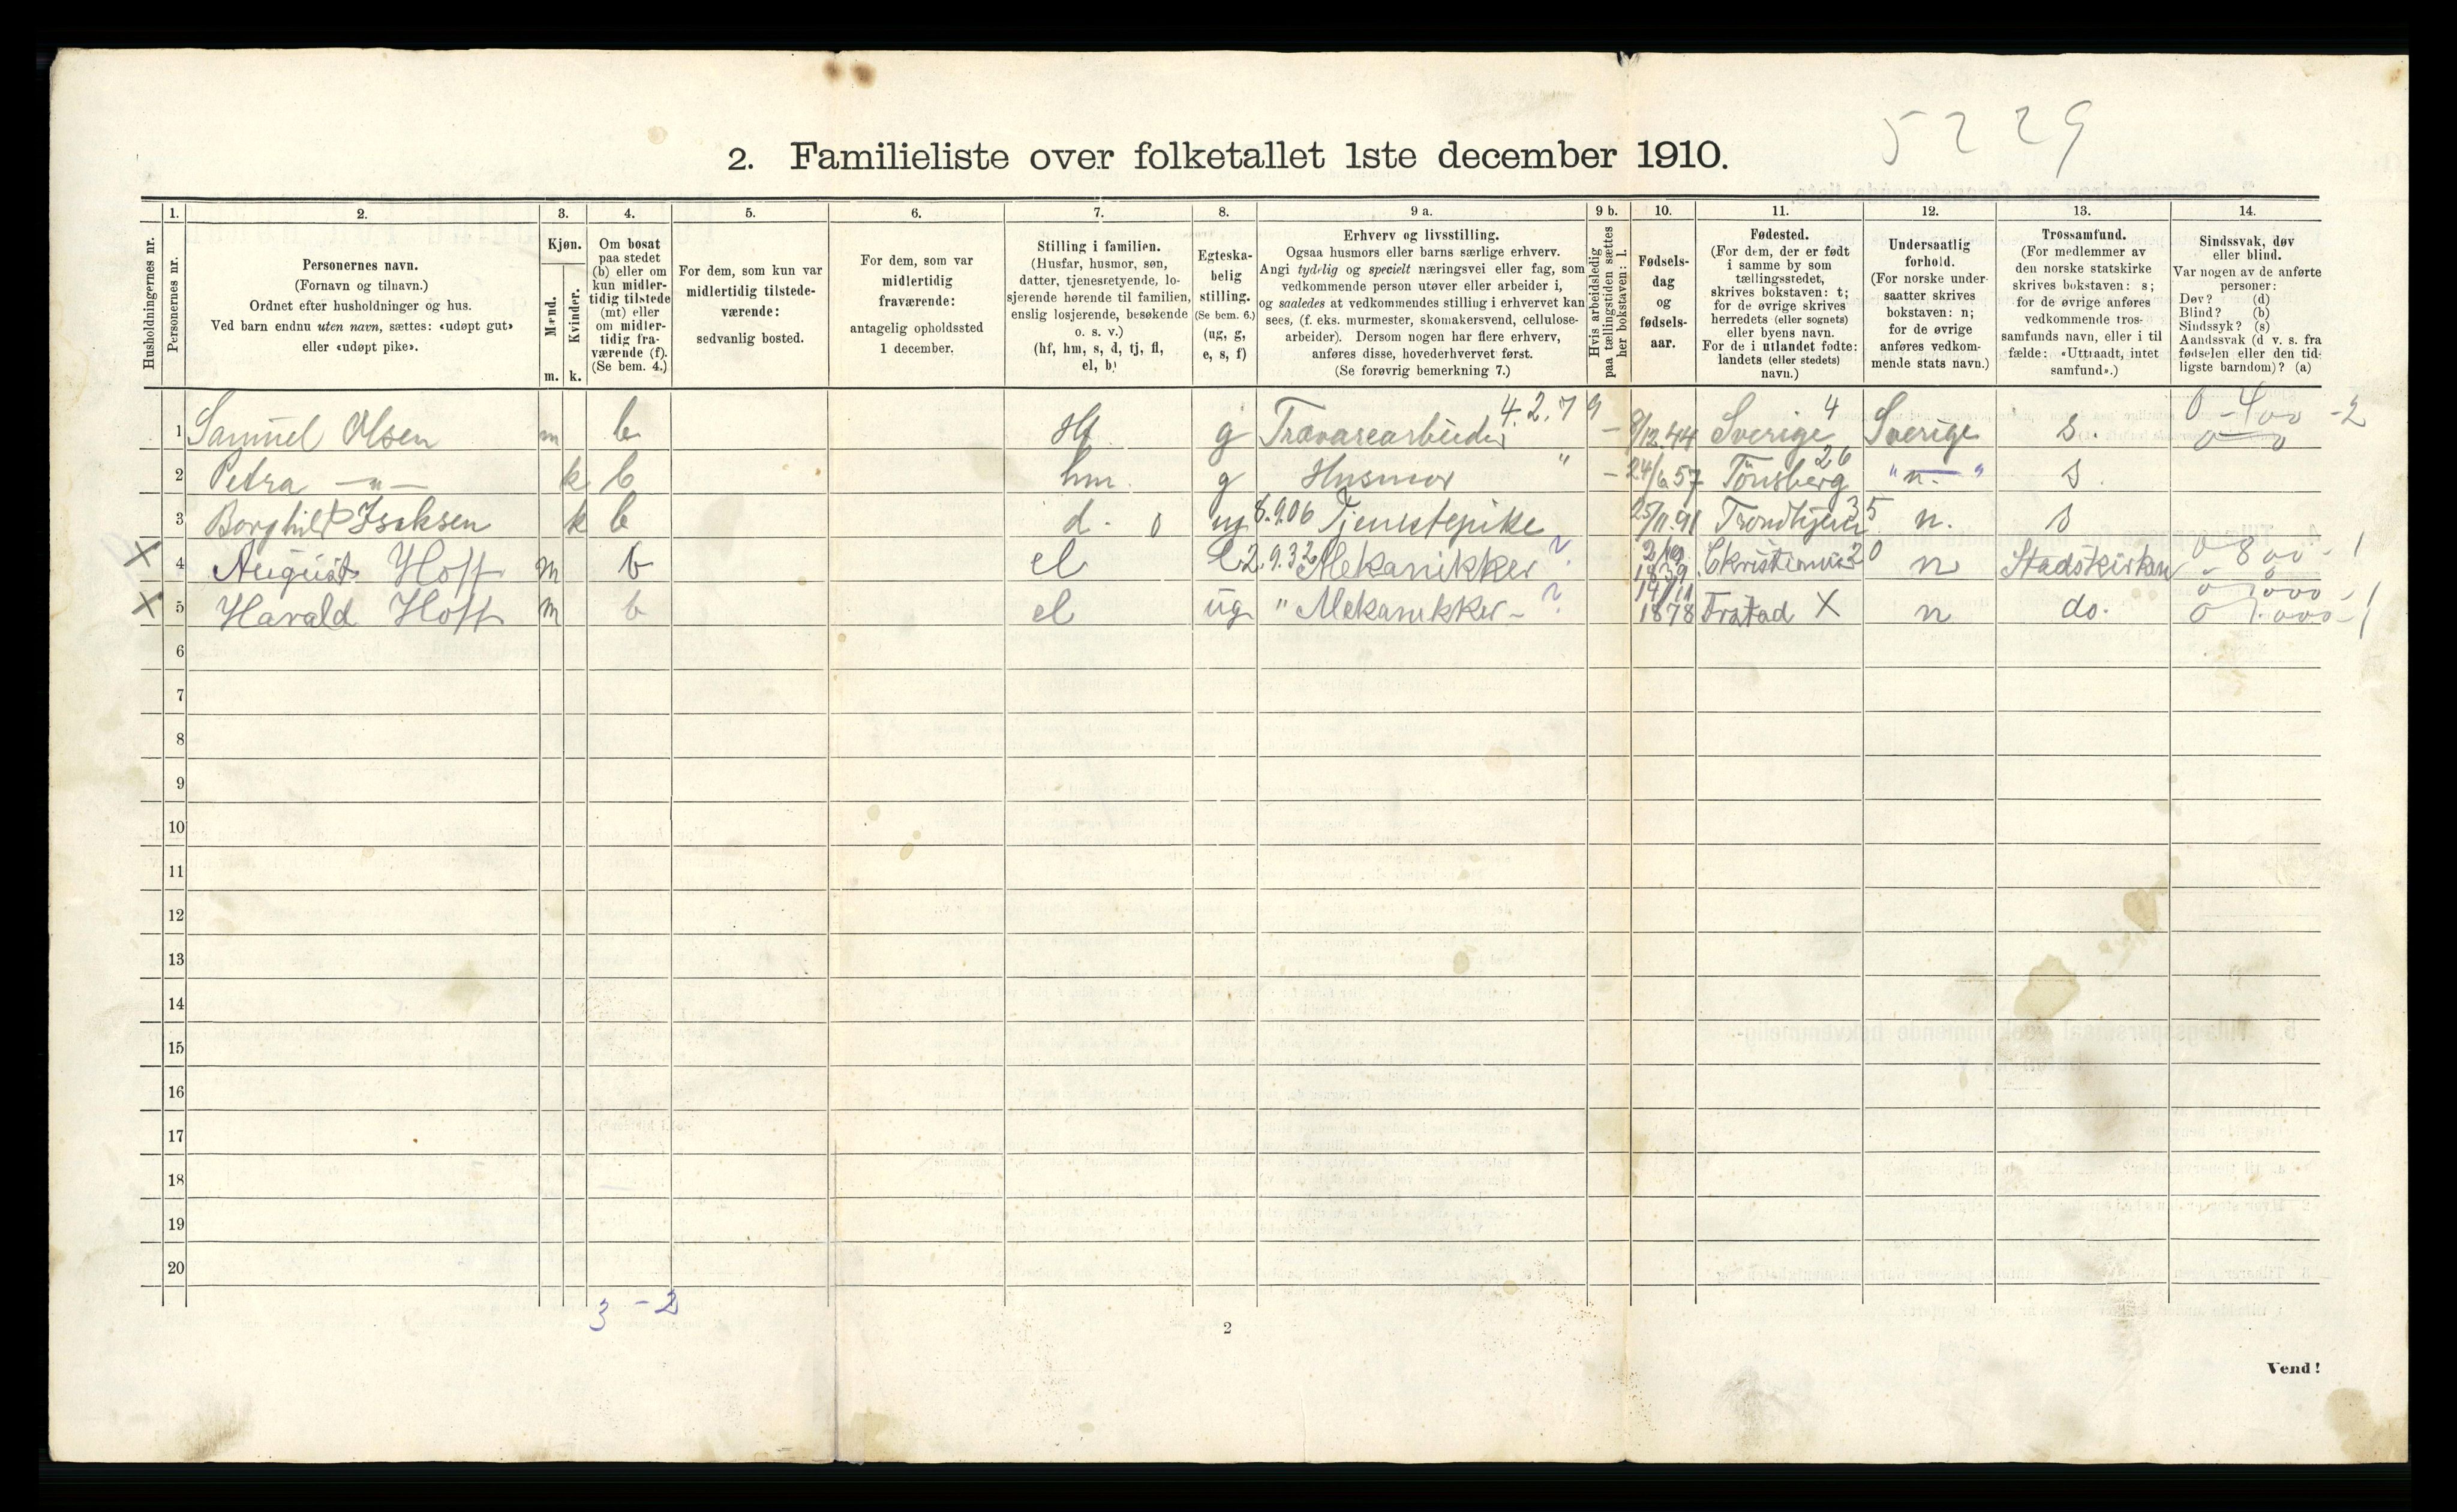 5229
2. Familieliste over folketallet 1ste december 1910.
Husholdningernes nr.
1.
Personernes nr.
2.
Personernes navn.
(Fornavn og tilnavn.)
Ordnet efter husholdninger og hus.
Ved barn endnu uten navn, sættes: «udøpt gut»
eller «udøpt pike».
3.
Kjøn.
Mænd.
Kvinder.
m. k.
4.
Om bosat
paa stedet
(b) eller om
kun midler-
tidig tilstede
(mt) eller
om midler-
tidig fra-
værende (f).
(Se bem. 4.)
5.
For dem, som kun var
midlertidig tilstede-
værende:
sedvanlig bosted.
6.
For dem, som var
midlertidig
fraværende:
antagelig opholdssted
1 december.
7.
Stilling i familien.
(Husfar, husmor, søn,
datter, tjenestetyende, lo-
sjerende hørende til familien,
enslig losjerende, besøkende
o. s. v.)
(hf, hm, s, d, tj, fl,
el, b)
8.
Egteska-
belig
stilling.
(Se bem. 6.)
(ug, g,
e, s, f)
9 a.
Erhverv og livsstilling.
Ogsaa husmors eller barns særlige erhverv.
Angi tydelig og specielt næringsvei eller fag, som
vedkommende person utøver eller arbeider i,
og saaledes at vedkommendes stilling i erhvervet kan
sees, (f. eks. murmester, skomakersvend, cellulose-
arbeider). Dersom nogen har flere erhverv,
anføres disse, hovederhvervet først.
(Se forøvrig bemerkning 7.)
9 b.
Hvis arbeidsledig
paa tællingstiden sættes
her bokstaven: l.
10.
Fødsels-
dag
og
fødsels-
aar.
11.
Fødested.
(For dem, der er født
i samme by som
tællingsstedet,
skrives bokstaven: t;
for de øvrige skrives
herredets (eller sognets)
eller byens navn.
For de i utlandet fødte:
landets (eller stedets)
navn.)
12.
Undersaatlig
forhold.
(For norske under-
saatter skrives
bokstaven: n;
for de øvrige
anføres vedkom-
mende stats navn.)
13.
Trossamfund.
(For medlemmer av
den norske statskirke
skrives bokstaven: s;
for de øvrige anføres
vedkommende tros-
samfunds navn, eller i til
fælde: «Uttraadt, intet
samfund».)
14.
Sindssvak, døv
eller blind.
Var nogen av de anførte
personer:
Døv? (d)
Blind? (b)
Sindssyk? (s)
Aandssvak (d v. s. fra
fødselen eller den tid-
ligste barndom)? (a)
1 Samuel Olsen m b Hf g Trævarearbeider 4.2.79 – 9/12.44 Sverige 4 Sverige s. 0 – 400 – 2
2 Petra —„— k b hm. g Husmor " – 24/6 57 Tönsberg 26 " n. " s.
3 Borghild Isaksen k b d. 0 ug 8.9.06 Tjenestepike 25/11.91 Trondhjem 35 n. s
X 4 August Hoff m b el e 2.9.32 Mekanikker ? 1839 Christiania 20 n Stadskirken 0 800 – 1
X 5 Harald Hoff m b el ug " Mekanikker – ? 14/11 1878 Frstad X n do. 0 1.000 – 1
6
7
8
9
10
11
12
13
14
15
16
17
18
19
20
3 – 2
2
Vend!